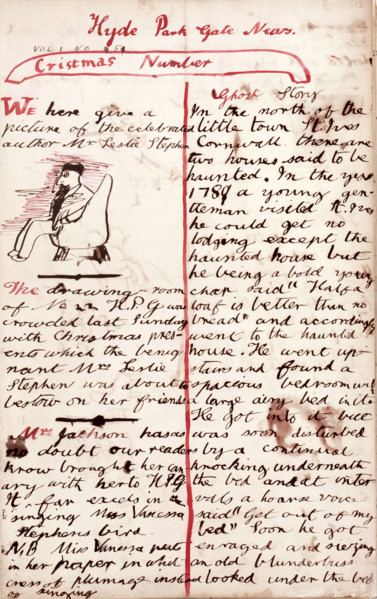 Hyde Park Gate News.
VOL 1 NO
Cristmas Number
We here give a
picture of the celebrated
author Mr Leslie Stephen
The drawing-room
of No H.P.G was
crowded last Sunday
with Christmas pres-
ents which the benig
nant Mrs Leslie
Stephen was about to
bestow on her friends
Mrs Jackson has as
no doubt our readers
know brought her can
ary with her to H.P.G
It far excels in
singing Miss Vanessa
Stephens bird.
N.B Miss Vanessa
in her paper in which
cress of plumage instead
of singing
Ghost Story
In the north of the
little town St. Ives
Cornwall there are
two houses said to be
haunted. In the year
1789 a young gen-
tleman visited St. Ives
he could get no
lodging except the
haunted house but
he being a bold young
chap said "Half a
loaf is better than no
bread" and accordingly
went to the haunted
house. He went up-
stairs and found a
spacious bedroom with
a large airy bed in it
He got into it but
was soon disturbed
by a continual
knocking underneath
the bed and at inter
vals a hoarse voice
said "Get out of my
bed" Soon he got
enraged and seizing
an old blunderbuss
looked under the bed